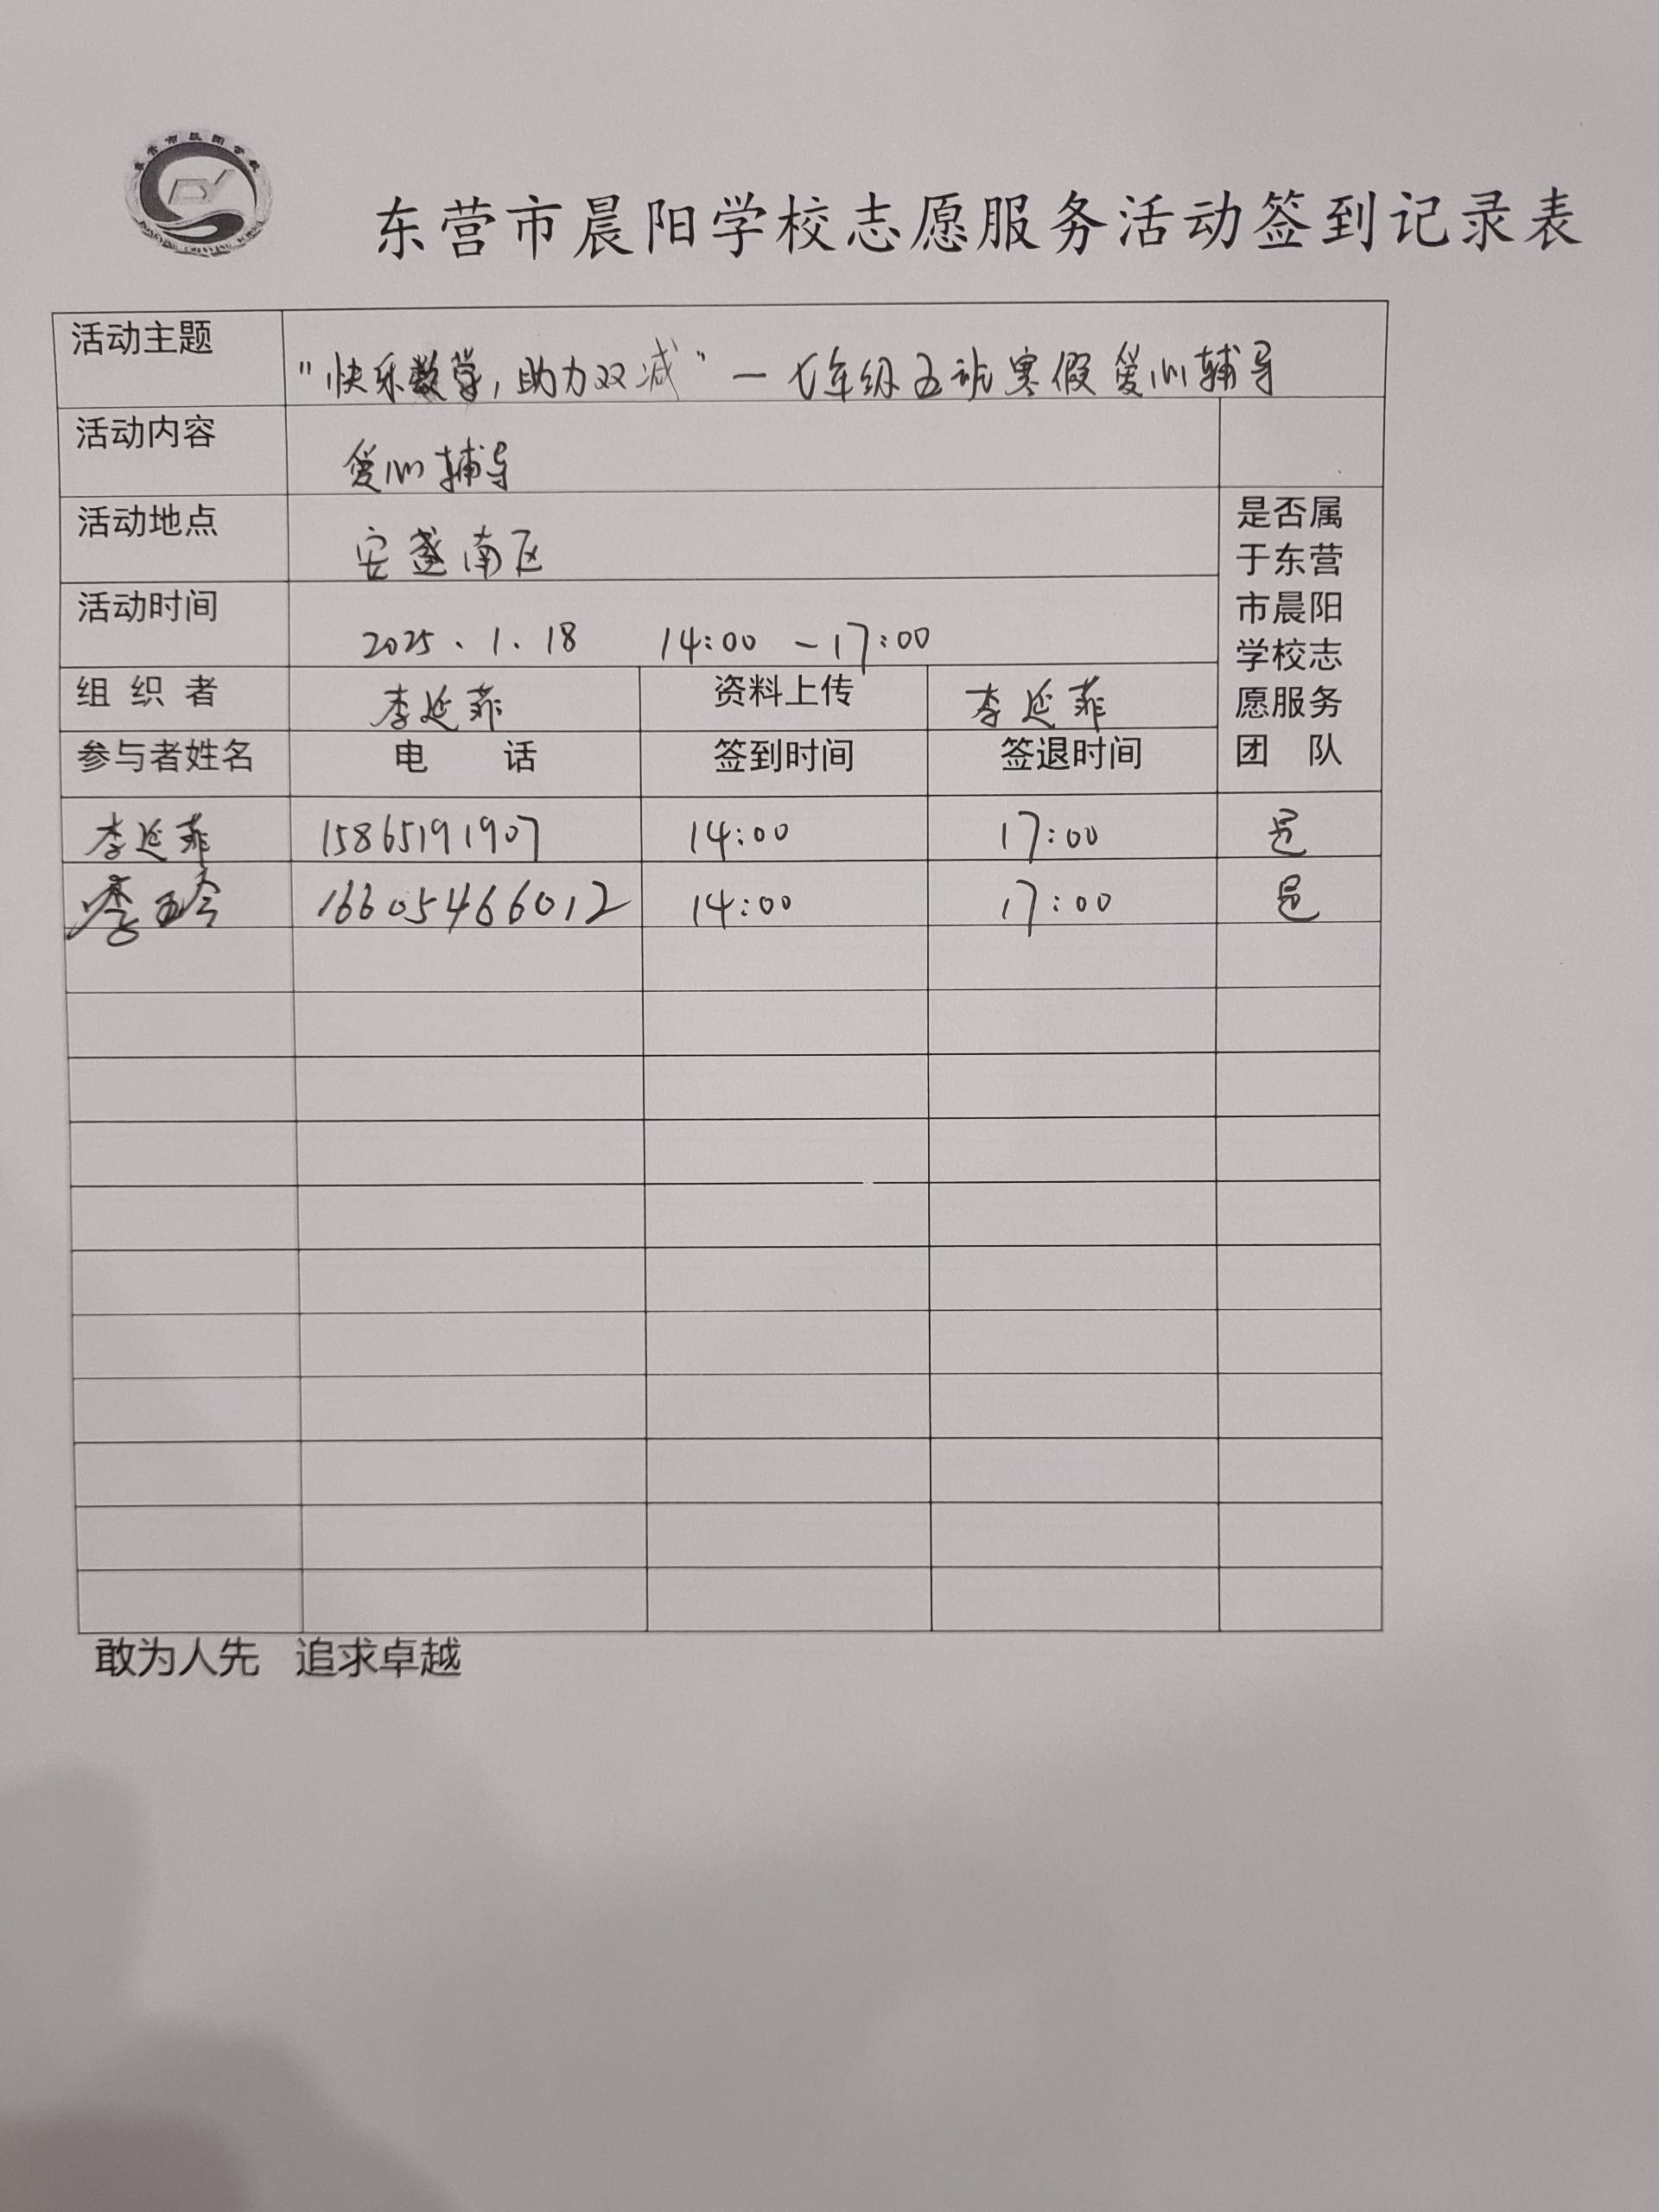 东营市晨阳学校
东营市晨阳学校志愿服务活动签到记录表
活动主题 "快乐数学,助力双减"一七年级五班寒假爱心辅导
活动内容 爱心辅导
活动地点 安盛南区
是否属于东营市晨阳学校志愿服务团 队
活动时间 2025、1、18 14:00 — 17:00
组 织 者 李延菲 资料上传 李延菲
参与者姓名 电 话 签到时间 签退时间
李延菲 15865191907 14:00 17:00 是
李玉玲 16605466012 14:00 17:00 是
敢为人先 追求卓越